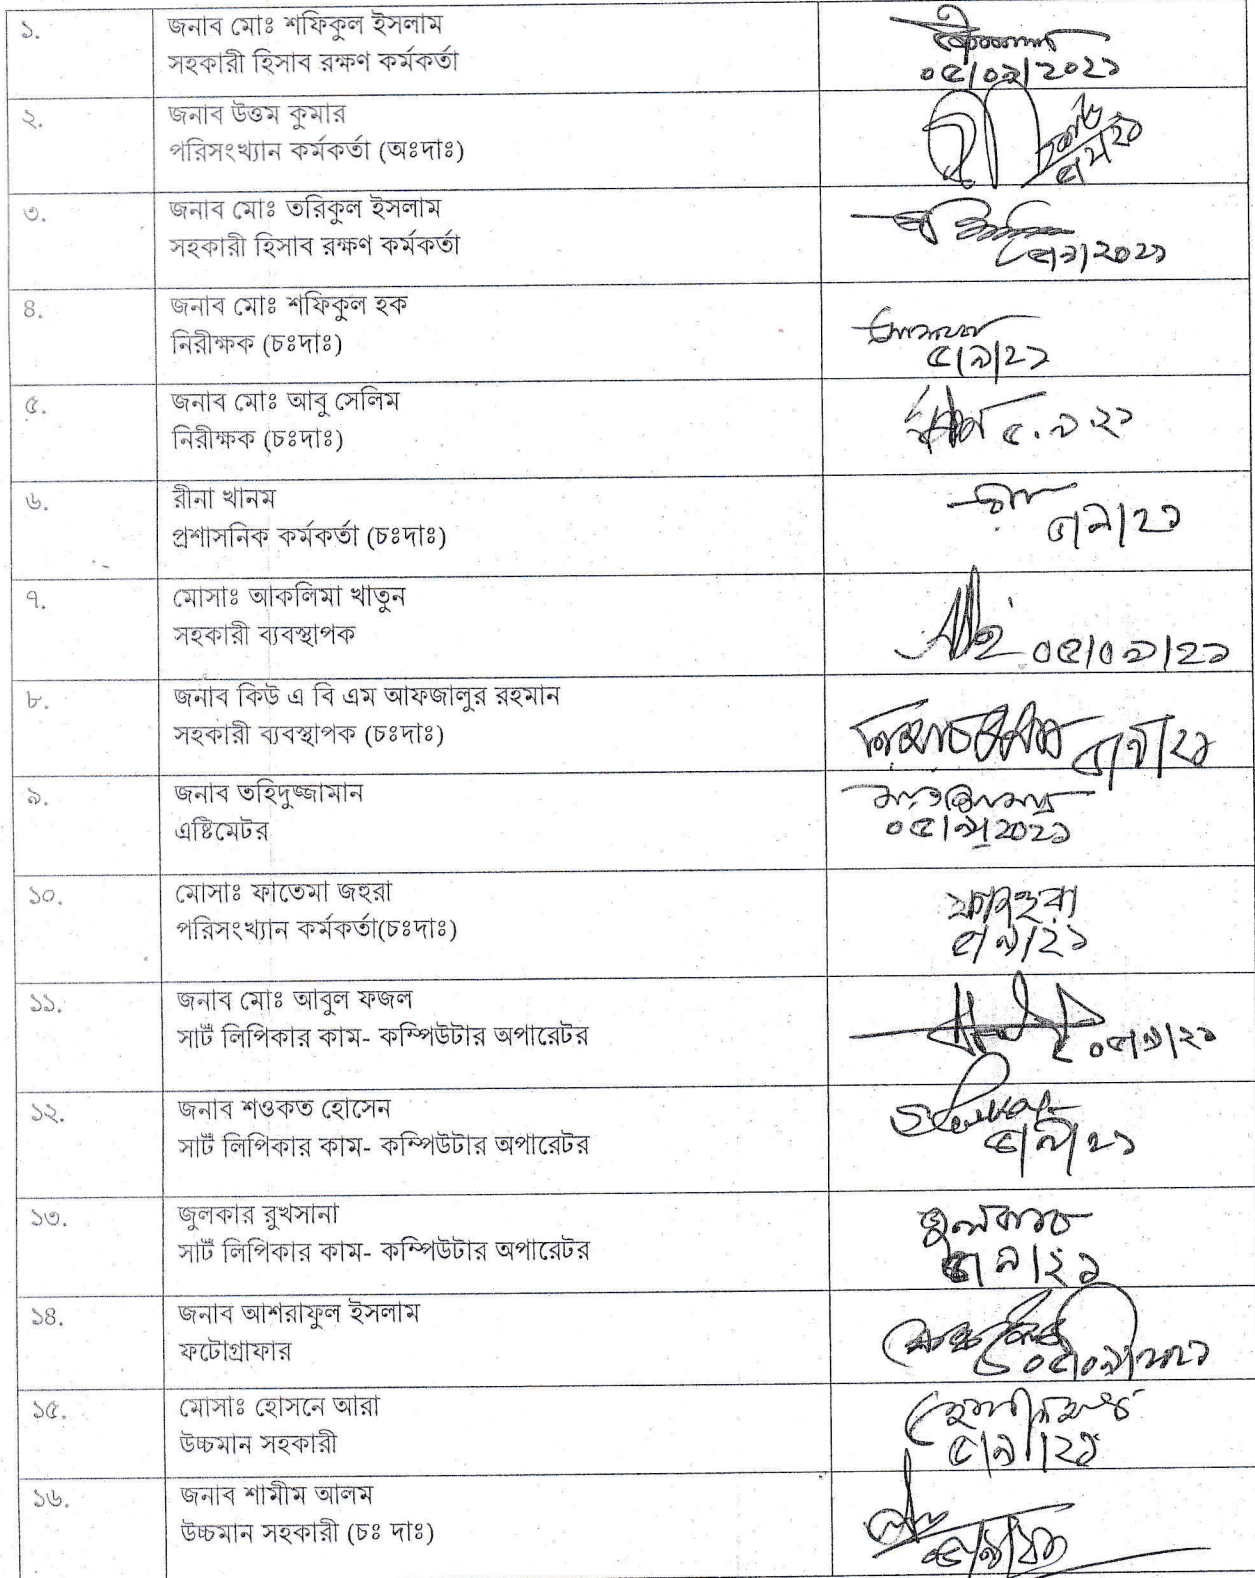 ১.
জনাব মোঃ শফিকুল ইসলাম
সহকারী হিসাব রক্ষণ কর্মকর্তা
০৫/০৯/২০২১
২.
জনাব উত্তম কুমার
পরিসংখ্যান কর্মকর্তা (অঃদাঃ)
৩.
জনাব মোঃ তরিকুল ইসলাম
সহকারী হিসাব রক্ষণ কর্মকর্তা
৫/৯/২০২১
৪.
জনাব মোঃ শফিকুল হক
নিরীক্ষক (চঃদাঃ)
৫/৯/২১
৫.
জনাব মোঃ আবু সেলিম
নিরীক্ষক (চঃদাঃ)
৫.৯.২১
৬.
রীনা খানম
প্রশাসনিক কর্মকর্তা (চঃদাঃ)
৫/৯/২১
৭.
মোসাঃ আকলিমা খাতুন
সহকারী ব্যবস্থাপক
০৫/০৯/২১
৮.
জনাব কিউ এ বি এম আফজালুর রহমান
সহকারী ব্যবস্থাপক (চঃদাঃ)
৫/৯/২১
৯.
জনাব তহিদুজ্জামান
এষ্টিমেটর
০৫/৯/২০২১
১০.
মোসাঃ ফাতেমা জহুরা
পরিসংখ্যান কর্মকর্তা(চঃদাঃ)
৫/৯/২১
১১.
জনাব মোঃ আবুল ফজল
সার্ট লিপিকার কাম- কম্পিউটার অপারেটর
০৫/৯/২১
১২.
জনাব শওকত হোসেন
সার্ট লিপিকার কাম- কম্পিউটার অপারেটর
৫/৯/২১
১৩.
জুলকার রুখসানা
সার্ট লিপিকার কাম- কম্পিউটার অপারেটর
৫/৯/২১
১৪.
জনাব আশরাফুল ইসলাম
ফটোগ্রাফার
০৫/০৯/২০২১
১৫.
মোসাঃ হোসনে আরা
উচ্চমান সহকারী
৫/৯/২১
১৬.
জনাব শামীম আলম
উচ্চমান সহকারী (চঃ দাঃ)